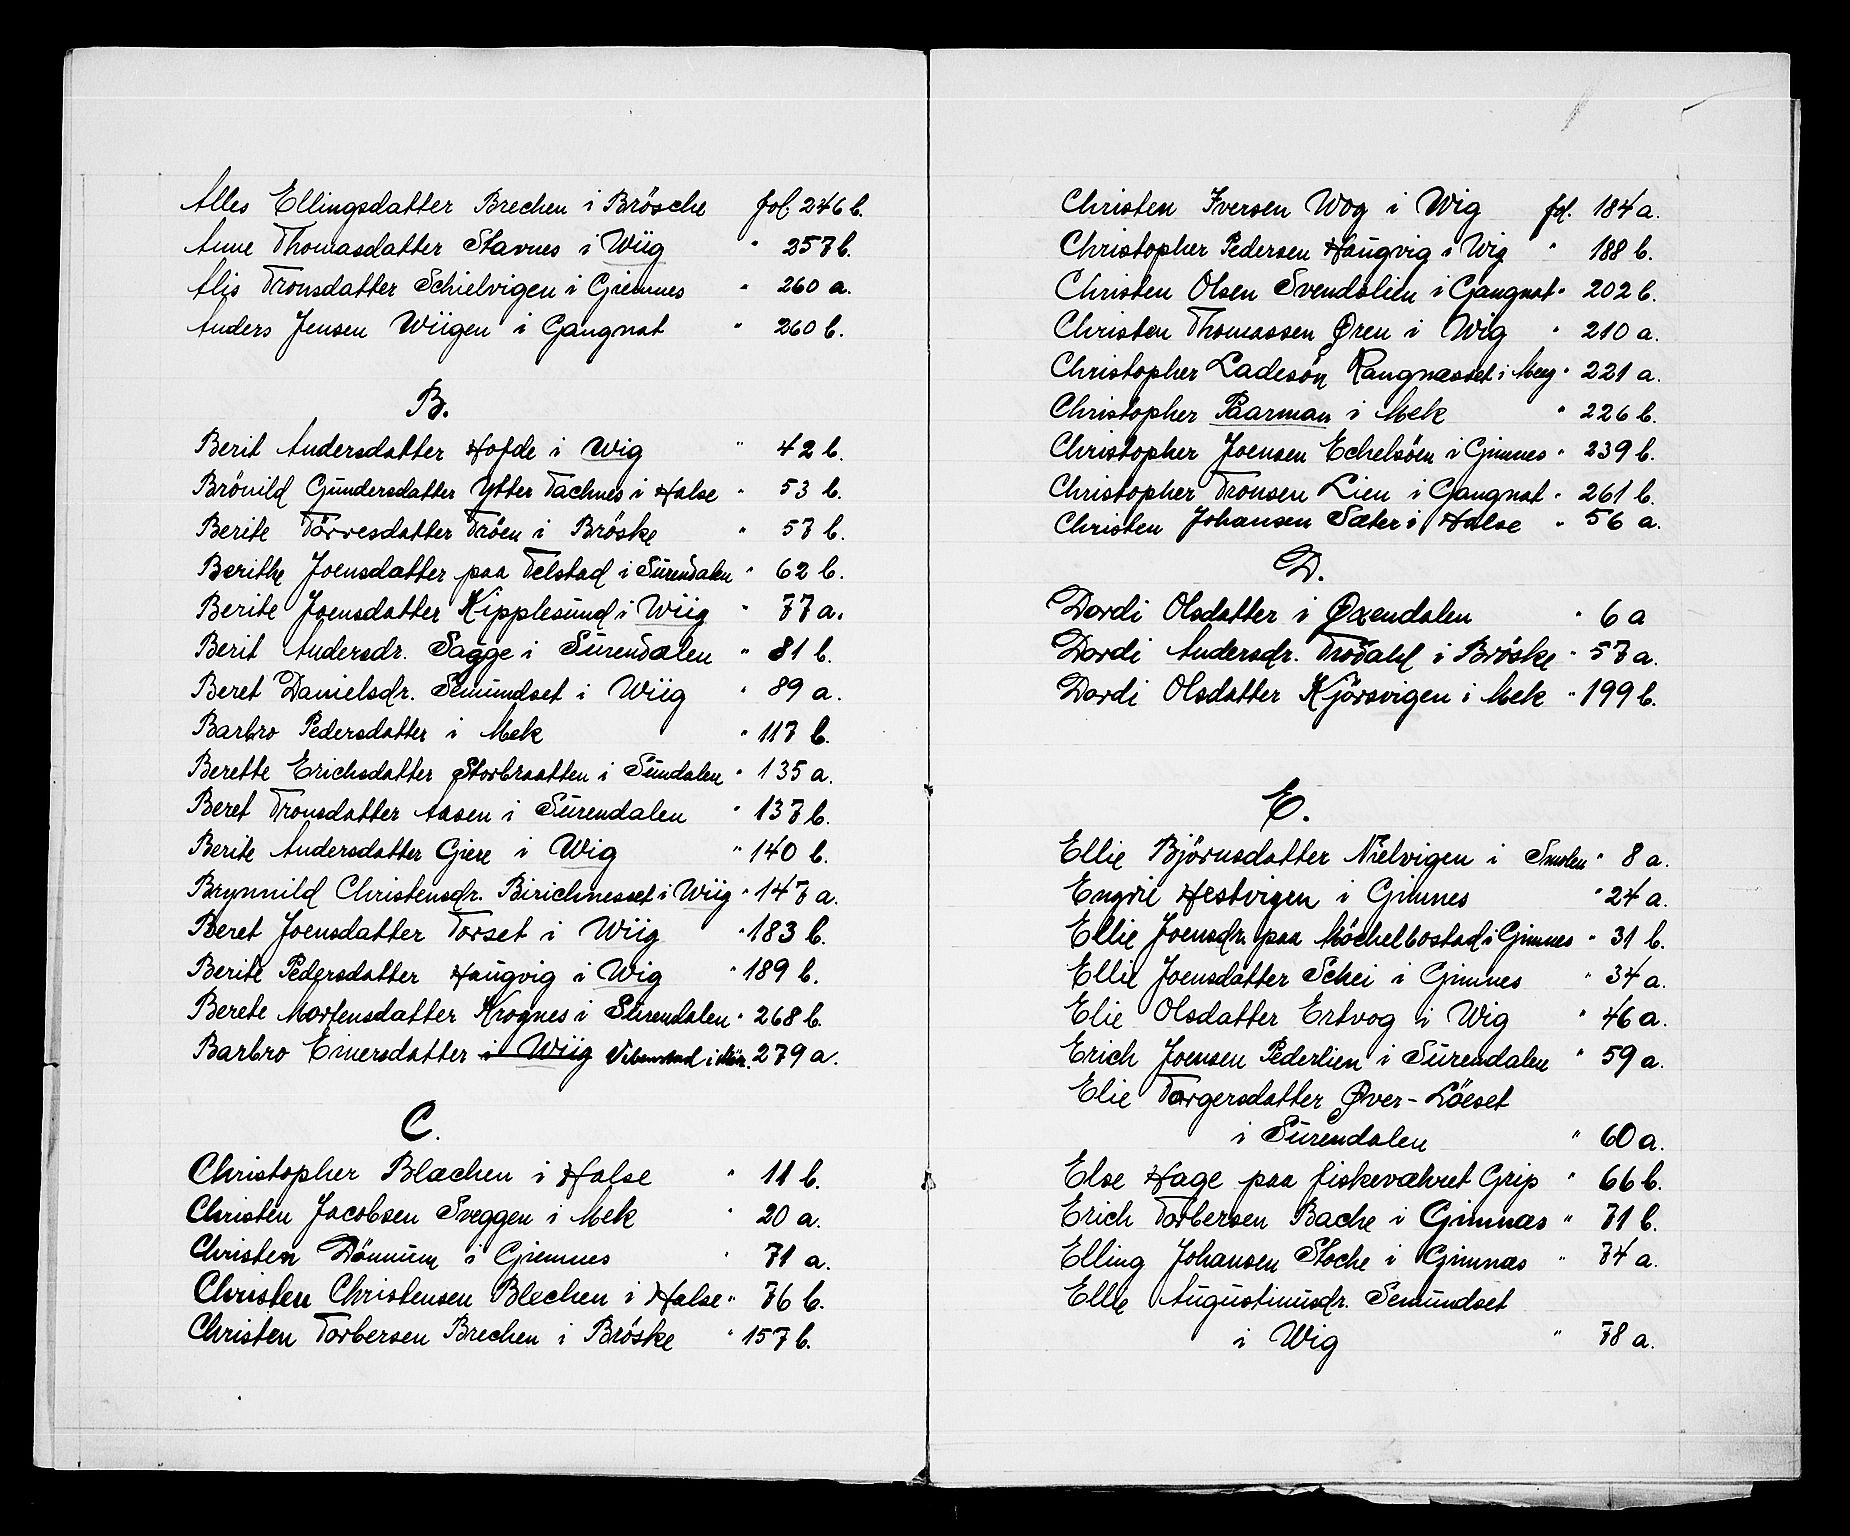 Alles Ellingsdatter Brechen i Brösche fol. 246 b.
Anne Thomasdatter Stavnes i Wiig " 257 b.
Alis Tronsdatter Schielvigen i Giemnes " 260 a.
Anders Jensen Wiigen i Gangnat " 260 b.
B.
Berit Andersdatter Hofde i Wig " 42 b.
Brönild Gundersdatter Ytter Tachnes i Halse " 53 b.
Berite Törresdatter Tröen i Bröske " 57 b.
Berithe Joensdatter paa Telstad i Surendalen " 62 b.
Berite Joensdatter Kipplesund i Wiig " 77 a.
Berit Andersdr. Sagge i Surendalen " 81 b.
Beret Danielsdr. Semundset i Wiig " 89 a.
Barbro Pedersdatter i Mek " 117 b.
Berette Erichsdatter Storbraatten i Sundalen " 135 a.
Beret Tronsdatter Aasen i Surendalen " 137 b.
Berite Andersdatter Giere i Wig " 140 b.
Brynnild Christensdr. Birichnesset i Wiig " 147 a.
Beret Joensdatter Torset i Wiig " 183 b.
Berite Pedersdatter Haugvig i Wig " 189 b.
Berete Mortensdatter Krognes i Surendalen " 268 b.
Barbro Einersdatter i Wiig i 279 a.
C.
Christopher Blachen i Halse " 11 b.
Christen Jacobsen Sveggen i Mek " 20 a.
Christen Dönnum i Giemnes " 71 a.
Christen Christensen Blechen i Halse " 76 b.
Christen Torbersen Brechen i Bröske " 157 b.
Christen Iversen Wog i Wig fol. 184 a.
Christopher Pedersen Haugvig i Wig " 188 b.
Christen Olsen Svendslien i Gangnat " 202 b.
Christen Thomassen Øren i Wig " 210 a.
Christopher Ladesön Rangnæsset i Meeg " 221 a.
Christopher Paarman i Mek " 226 b.
Christopher Joensen Echelsöen i Gimnes " 239 b.
Christopher Tronsen Lien i Gangnat " 261 b.
Christen Johansen Sæter i Halse " 56 a.
D.
Dordi Olsdatter i Øxendalen " 6 a
Dordi Andersdr. Trodahl i Bröske " 57 a.
Dordi Olsdatter Kjörsvigen i Mek " 199 b.
E.
Ellie Björnsdatter Nielvigen i Smølen " 8 a.
Engril Hestvigen i Gimnes " 24 a.
Ellie Joensdr. paa Möchelbostad i Gimnes " 31 b.
Ellie Joensdatter Schei i Gimnes " 34 a.
Elie Olsdatter Ertvog i Wig " 46 a.
Erich Joensen Pederlien i Surendalen " 59 a.
Elie Torgersdatter Øver-Löeset
i Surendalen " 60 a.
Else Hage paa fiskeværet Grip " 66 b.
Erich Torbersen Bache i Gimnæs " 71 b.
Elling Johansen Stoche i Gimnæs " 74 a.
Elle Augustinusdr. Semundset
i Wig " 78 a.